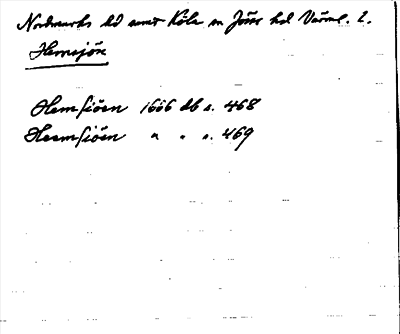 Nordmarks hd samt Köla sn Jösse hd Värml. l.
Hemsjön
Hemsiöen 1666 db s. 468
Heemsiöen " " s. 469